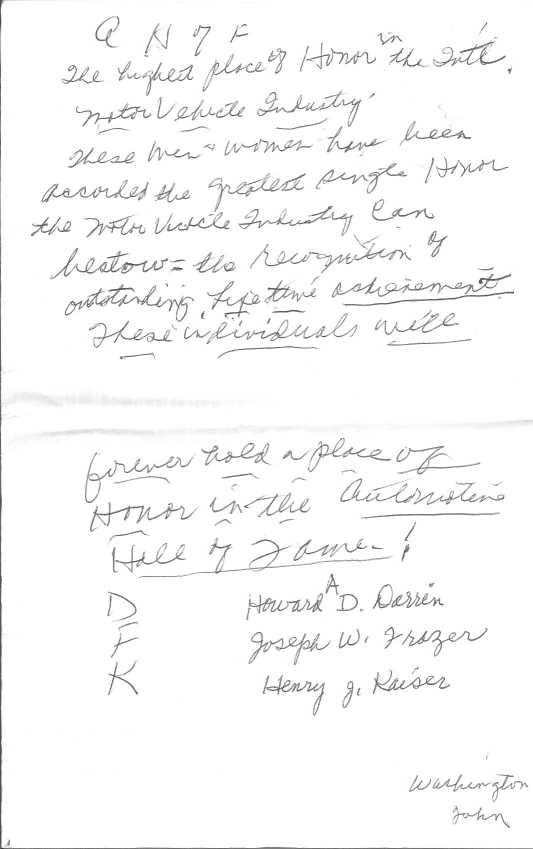 a H of F
The highest place of Honor in the Int'l.
Motor Vehicle Industry.
These men & women have been
accorded the greatest single Honor
the Motor Vehicle Industry can
bestow = the recognition of
outstanding, lifetime achievement.
These individuals will
forever hold a place of
Honor in the Automotive
Hall of Fame - !
D Howard A D. Darrin
F Joseph W. Frazer
K Henry J. Kaiser
Washington
John